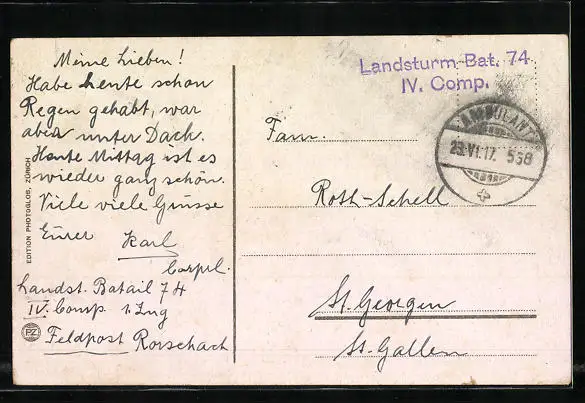 Meine Lieben!
Habe heute schon
Regen gehabt, war
aber unter Dach.
Heute Mittag ist es
wieder ganz schön.
Viele viele Grüsse
Eurer Karl
Corprl.
Landst. Batail 74
IV. Comp 1. Zug
Feldpost Rorschach
EDITION PHOTOGLOB, ZÜRICH
PZ
Landsturm-Bat. 74
IV. Comp.
AMBULANT
23.VI.17. 538
Fam.
Roth-Schell
St. Georgen
St. Gallen